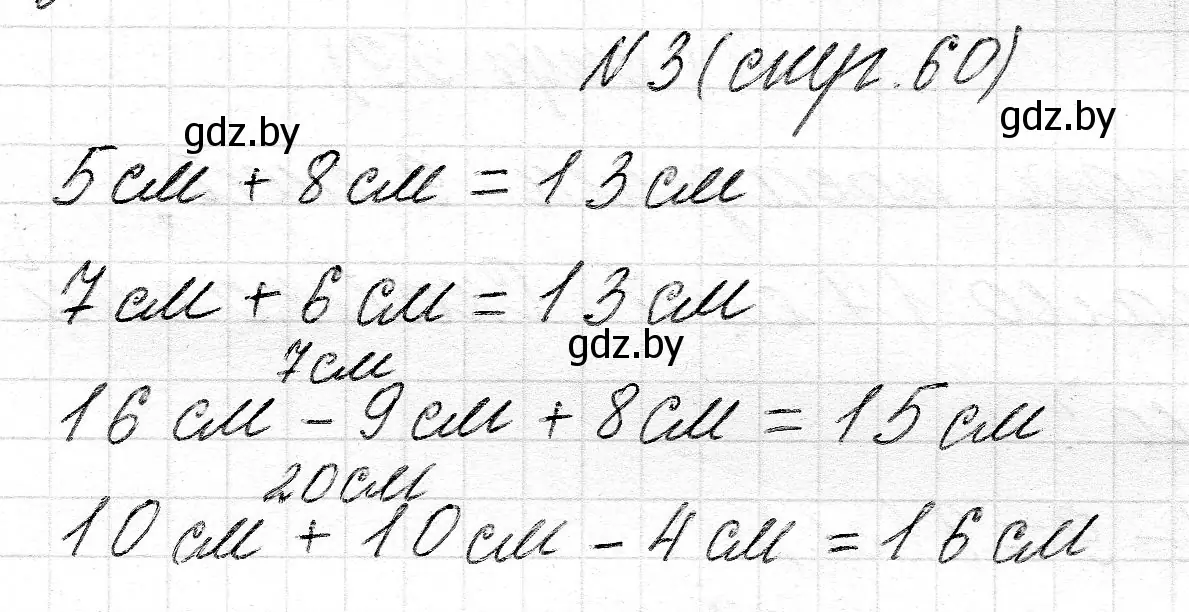 N 3 (стр. 60)
gdz.by
gdz.by
5 см + 8 см = 13 см
7 см + 6 см = 13 см
gdz.by
7 см
16 см - 9 см + 8 см = 15 см
20 см
10 см + 10 см - 4 см = 16 см